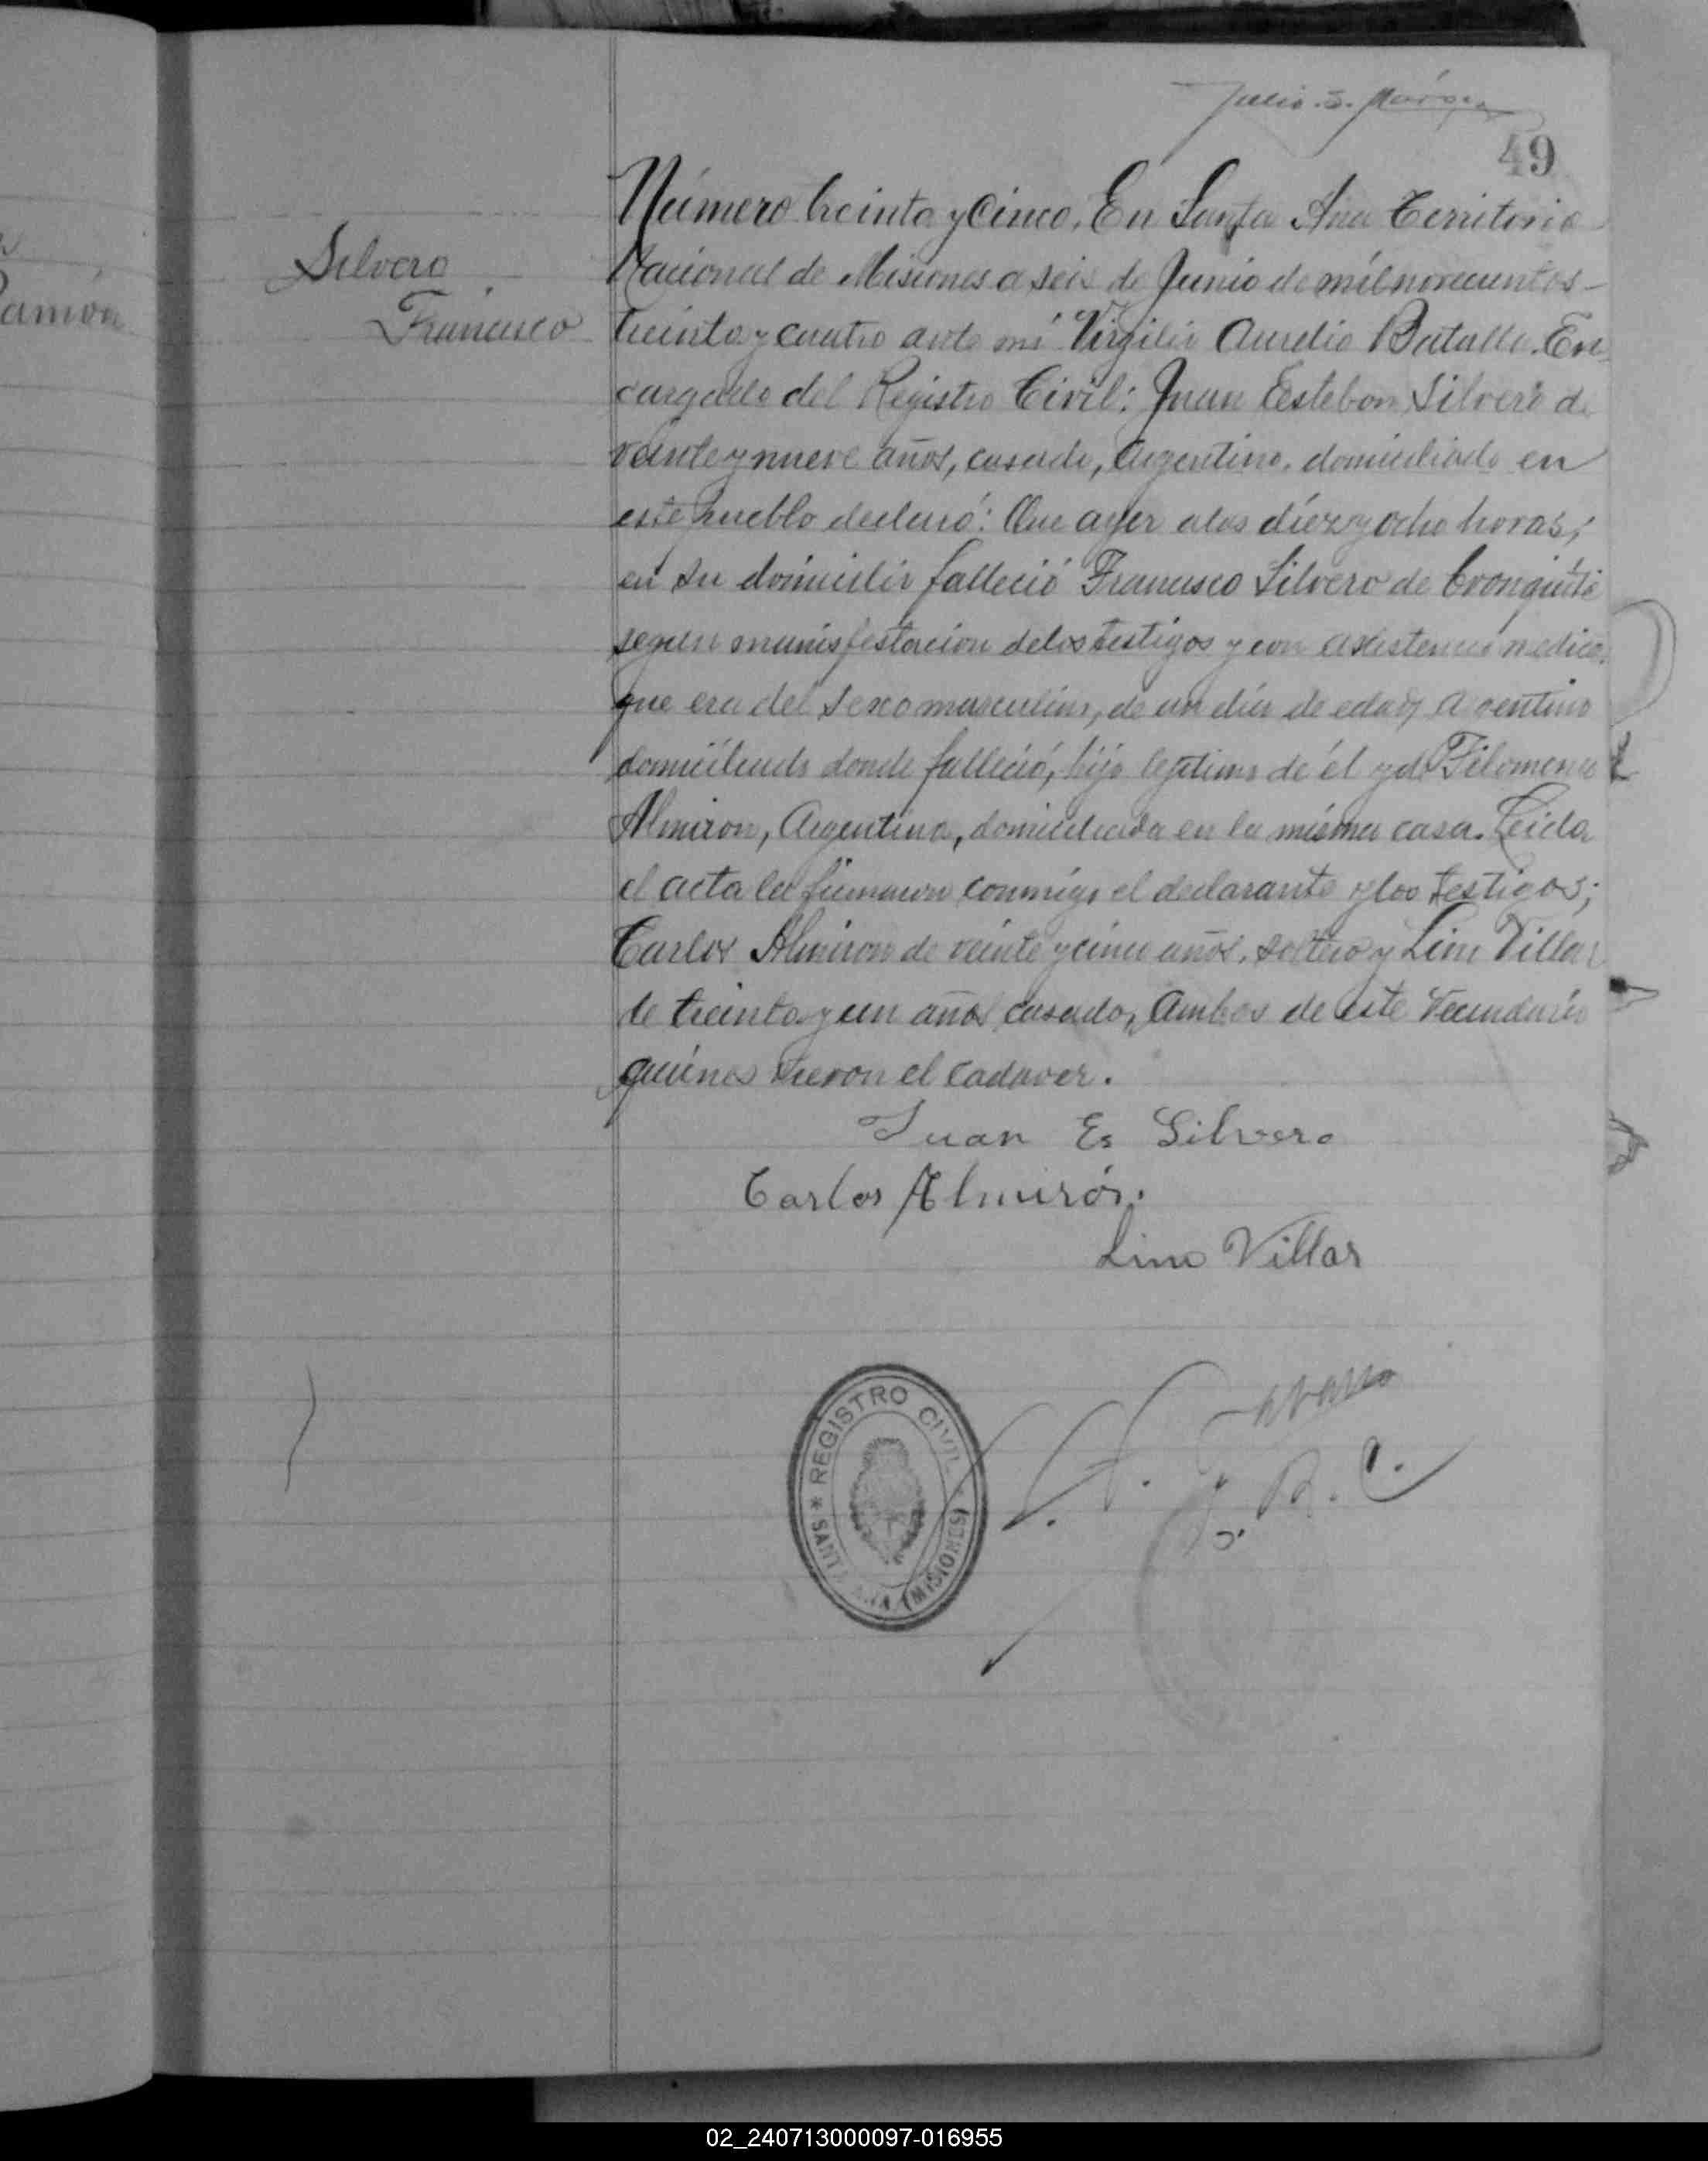 Julio. S.
49
Ramón
Silvero
Francisco
Número treinta y Cinco. En Santa Ana Territorio
Nacional de Misiones a seis de Junio de mil novecientos-
treinta y cuatro ante mí Virgilio Aurelio Batalla. En
cargado del Registro Civil: Juan Esteban Silvero de
veinte y nueve años, casado, Argentino, domiciliado en
este pueblo declaró: Que ayer a las diez y ocho horas;
en su domicilio falleció Francisco Silvero de bronquitis
según manisfestacion de los testigos y con asistencia medica.
que era del sexo masculino, de un día de edad, Argentino
domiciliado donde falleció, hijo legitimo de él y de Filomena
Almiron, Argentina, domiciliada en la misma casa. Leida
el acta la firmaron conmigo el declarante y los testigos;
Carlos Almiron de veinte y cinco años, soltero y Lino Villar
de treinta y un años, casado, Ambos de este Vecindario
quiénes vieron el cadaver.
Juan Es Silvero
Carlos Almirón.
Lino Villar
REGISTRO CIVIL
* SANTA ANA (MISIONES)
R. C.
02_240713000097-016955